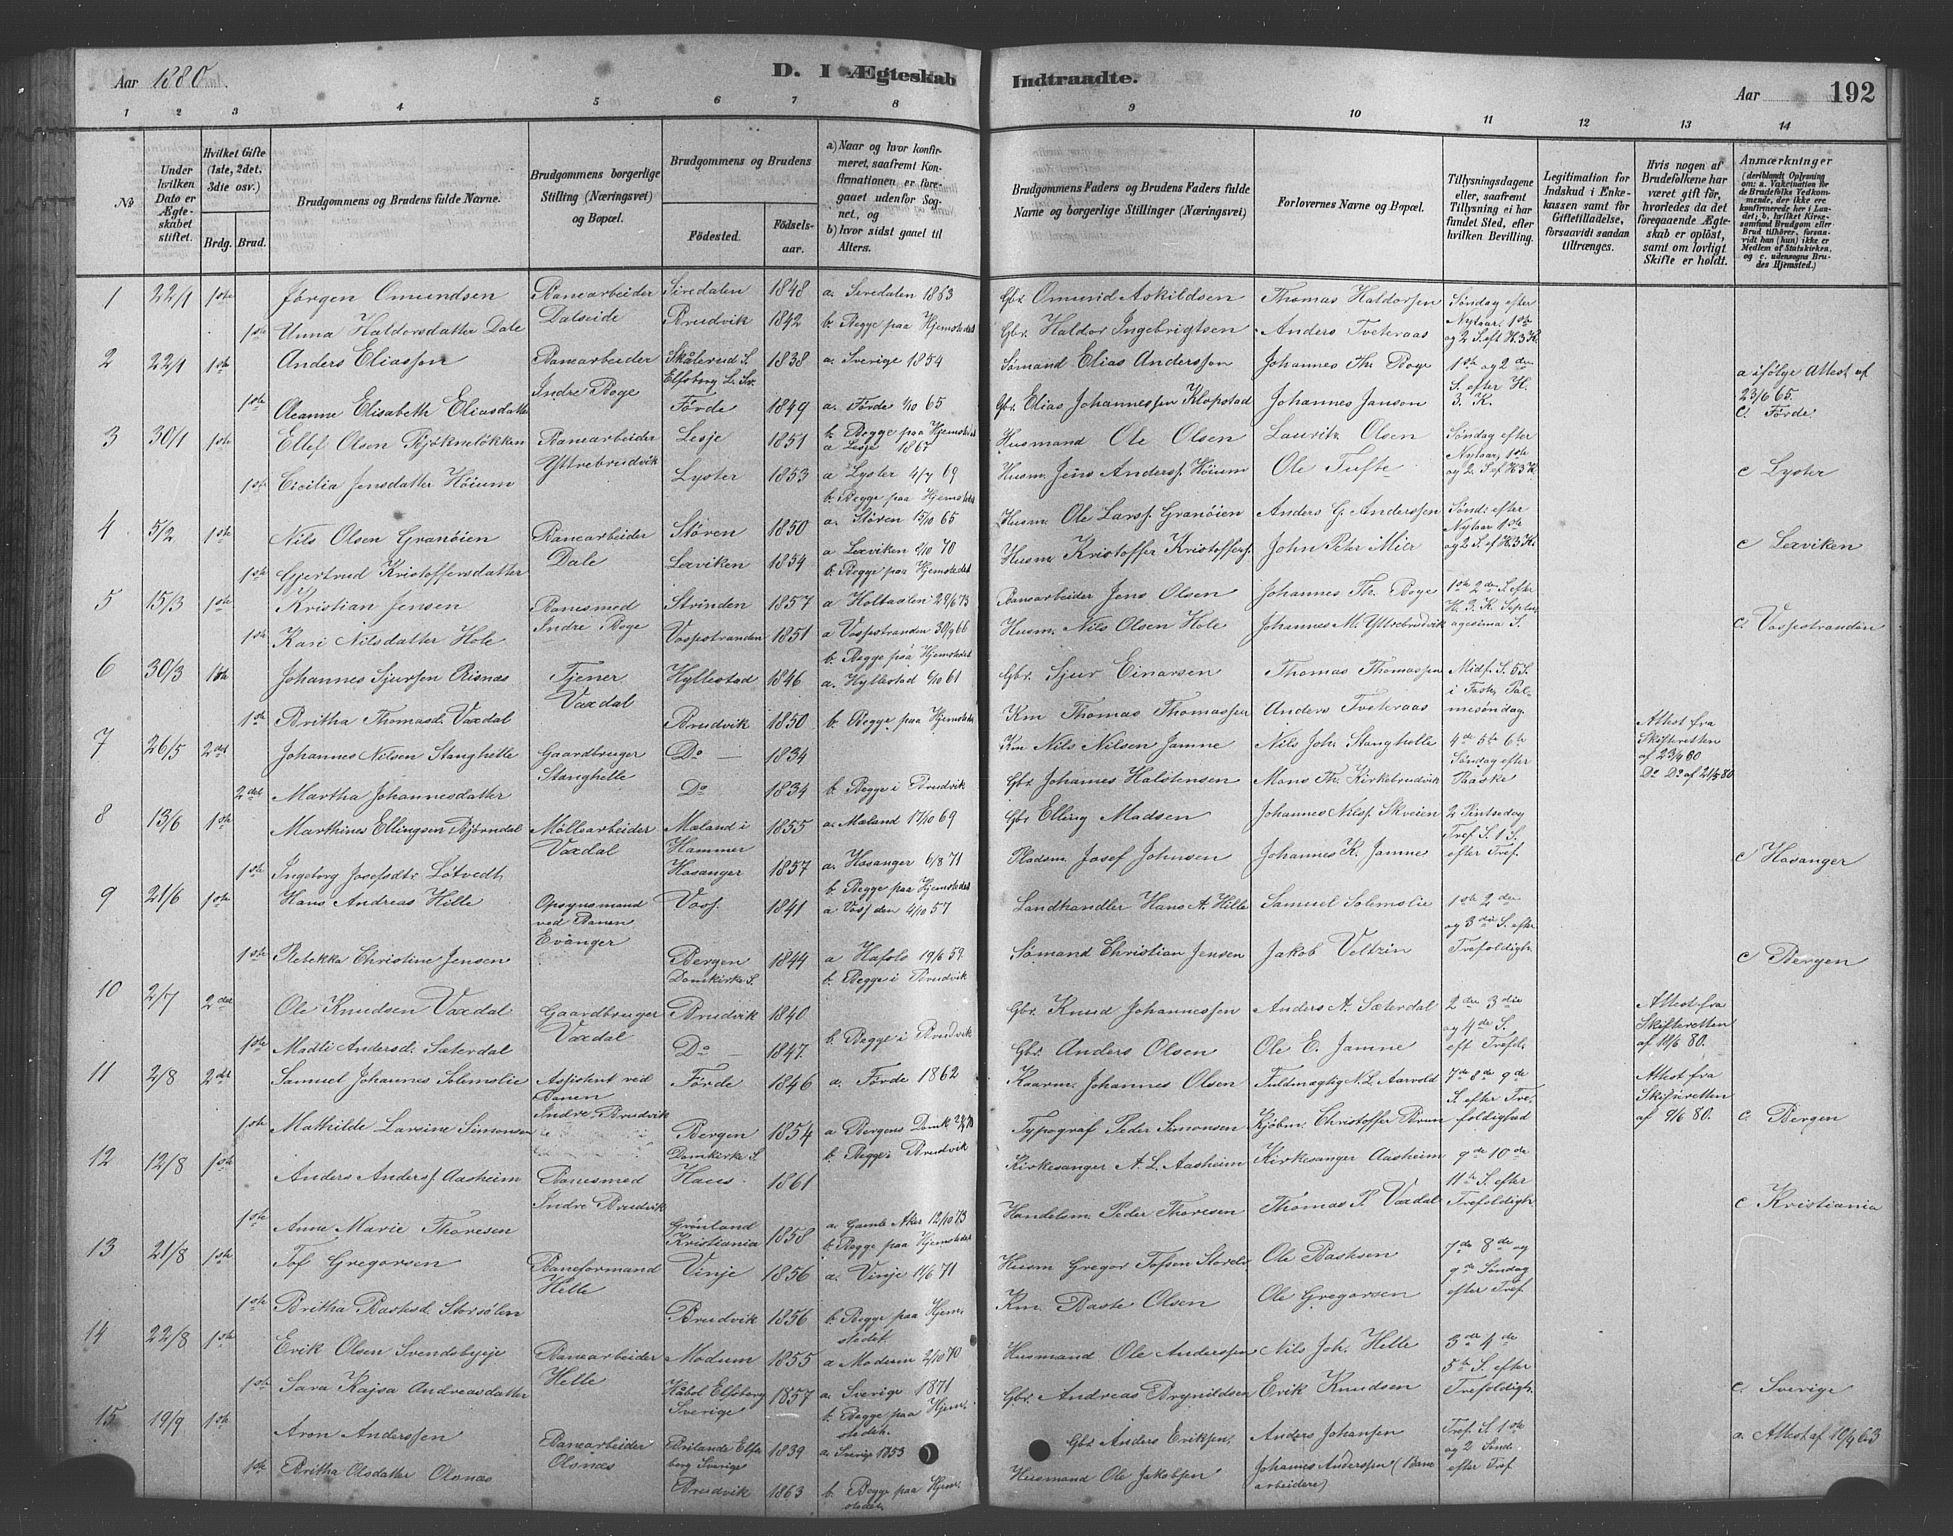 Aar 1880.
D. I Ægteskab Indtraadte.
Aar 192
1 2 3 4 5 6 7 8 9 10 11 12 13 14
No
Under hvilken Dato er Ægteskabet stiftet.
Hvilket Gifte (1ste, 2det, 3die osv.)
Brdg. Brud.
Brudgommens og Brudens fulde Navne.
Brudgommens borgerlige Stilling (Næringsvei) og Bopæl.
Brudgommens og Brudens
Fødested. Fødselsaar.
a) Naar og hvor konfirmeret, saafremt Konfirmationen er foregaaet udenfor Sognet, og
b) hvor sidst gaaet til Alters.
Brudgommens Faders og Brudens Faders fulde Navne og borgerlige Stillinger (Næringsvei)
Forlovernes Navne og Bopæl.
Tillysningsdagene eller, saafremt Tillysning ei har fundet Sted, efter hvilken Bevilling.
Legitimation for Indskud i Enkekassen samt for Giftetilladelse, forsaavidt saadan tiltrænges.
Hvis nogen af Brudefolkene har været gift før, hvorledes da det foregaaende Ægteskab er opløst, samt om lovligt Skifte er holdt.
Anmærkninger
1 22/1 1ste Jørgen Omundsen Banearbeider Siredalen 1848 a. Siredalen 1863 Gbr. Omund Askildsen Thomas Haldorsen Søndag efter
1ste Unna Haldorsdatter Dale Dalseide Brudvik 1842 b. Begge paa Hjemstedet Gbr. Haldor Ingebrigtsen Anders Tveteraas Nytaar, 1ste og 2 S. eft H.3K.
2 22/1 1ste Anders Eliassen Banearbeider Skålerud S. Elfsborg L. Sv. 1838 a. Sverige 1854 Sømand Elias Anderssøn Johannes Th. Boge 1ste og 2den S. efter H. 3. K. a ifølge Attest af 23/6 65.
1ste Oleanne Elisabeth Eliasdatter Indre Boge Førde 1849 a. Førde 1/10 65 Gbr. Elias Johannessen Klopstad Johannes Janson C. Førde
b. Begge paa Hjemstedet
3 30/1 1ste Ellef Olsen Bjøkneløkken Banearbeider Lesje 1851 a Lesje 1867 Husmand Ole Olsen Lauritz Olsen Søndag efter
1ste Cicilia Jensdatter Høium Yttrebrudvik Lyster 1853 a Lyster 4/7 69 Husm. Jens Anders. Høium Ole Tufte Nytaar, 1ste og 2. S. ef H.3K. c Lyster
b. Begge paa Hjemstedet
4 5/2 1ste Nils Olsen Granøien Banearbeider Støren 1850 a. Støren 15/10 65 Husm. Ole Lars. Granøien Anders G. Anderssen Sønd. efter
1ste Gjertrud Kristoffersdatter Dale Lexviken 1854 a Lexviken 9/10 70 Husm. Kristoffer Kristoffers. John Peter Mier Nytaar 1ste og 2 S. ef H.3K. c Lexviken
b. Begge paa Hjemstedet
5 15/3 1ste Kristian Jensen Banesmed Strinden 1857 a Holtaalen 29/6 73 Banearbeider Jens Olsen Johannes Th. Boge 1ste 2den S. efter
1ste Kari Nilsdatter Hole Indre Boge Vospstranden 1851 a Vospstranden 30/9 66 Husm. Nils Olsen Hole Johannes M. Yttrebrudvik H. 3. K. Septuagesima S. c. Vospstranden
b. Begge paa Hjemstedet
6 30/3 1ste Johannes Sjursen Risnæs Tjener Hyllestad 1846 a. Hyllestad 6/10 61 Gbr. Sjur Einarsen Thomas Thomassen Midf. S. 5 S.
1ste Britha Thomasd. Vaxdal Vaxdal Brudvik 1850 b. Begge paa Hjemstedet Km Thomas Thomassen Anders Tveteraas i Faste, Palmesøndag.
7 26/5 2det Johannes Nilsen Stanghelle Gaardbruger Do 1834 Km Nils Nilsen Jamne Nils Joh. Stanghelle 4de 5te 6te Attest fra Skifteretten af 23/4 80
2det Martha Johannesdatter Stanghelle Do 1834 b. Begge i Brudvik Gbr Johannes Halstensen Mons Th. Kirkebrudvik Søndag efter Paaske Do Do af 21/5 80
8 13/6 1ste Marthines Ellingsen Bjørndal Møllearbeider Mæland i Hammer 1855 a. Mæland 17/10 69 Gbr Elling Madsen Johannes Nilss. Skveien 2 Pintsedag
1ste Ingeborg Josefsdtr. Løtvedt Vaxdal Hosanger 1857 a. Hosanger 6/8 71 Pladsm. Josef Johnsen Johannes K. Jamne Tref. S. 1 S. efter Tref. c Hosanger
b. Begge paa Hjemstedet
9 21/6 1ste Hans Andreas Hille Opsynsmand ved Banen Voss. 1841 a Voss den 4/10 57 Landhandler Hans A. Hille Samuel Solemslie 1ste 2den
1ste Rebekka Christine Jensen Evanger Bergen Domkirke S. 1844 a Hafslo 19/6 59. Sømand Christian Jensen Jakob Veltzin og 3die S. efter Trefoldigh. c Bergen
b. Begge i Brudvik
10 2/7 2det Ole Knudsen Vaxdal Gaardbruger Brudvik 1840 Gbr. Knud Johannessen Anders A. Sæterdal 2den 3die Attest fra Skifteretten af 18/6 80.
1ste Madli Andersd. Sæterdal Vaxdal Do 1847. b. Begge i Brudvik Gbr. Anders Olsen Ole E. Jamne og 4de S. eft Trefol.
11 2/8 2det Samuel Johannes Solemslie Assistent ved Banen Førde 1846 a. Førde 1862 Kaarm. Johannes Olsen Fuldmægtig N. L. Aarvold 7de 8de 9de Attest fra Skifteretten af 9/6 80.
1ste Mathilde Larsine Simonsen Indre Brudvik Bergen Domkirke S. 1854 a Bergens Domk Typograf Peder Simonsen Kjøbm. Christoffer Brun S. efter Trefoldighed c Bergen
b. Begge i Brudvik
12 12/8 1ste Anders Anders. Aasheim Banesmed Haus. 1861 Kirkesanger A. L. Aasheim Kirkesanger Aasheim 9de 10de
1ste Anne Marie Thoresen Indre Brudvik Grønland Kristiania 1858 a. Gamle Aker 12/10 73 Handelsm. Peder Thoresen Thomas P. Vaxdal 11te S. efter Trefoldigh. c Kristiania
b. Begge paa Hjemstedet
13 21/8 1ste Tof Gregorsen Baneformand Vinje 1856 a. Vinje 11/6 71 Husm Gregor Tofsen Ole Bastesen 7de 8de og
1ste Britha Bastesd. Storsølen Helle Brudvik 1856 b. Begge paa Hjemstedet. Km. Baste Olsen Ole Gregorsen 9de Søndag efter Tref.
14 22/8 1ste Erik Olsen Svendsbyeje Banearbeider Modum 1855 a Modum 2/10 70 Husmand Ole Anderssen Nils Joh. Helle 3de 4de
1ste Sara Kajsa Andreasdatter Helle Håbol Elfsborg Sverige 1857 a. Sverige 1871 Gbr. Andreas Brynildsen Erik Knudsen 5te S. efter Trefoldigh. c. Sverige
b. Begge paa Hjemstedet.
15 19/9 1ste Aron Anderssen Banearbeider Elfsborg Sverige 1839 a. Sverige 1853 Gbr Anders Eriksen. Anders Johansen Tref. S. 1ste a. Attest af 10/9 63
1ste Britha Olsdatter Olsnæs Olsnæs Brudvik 1863 b. Begge paa Hjemstedet Husmand Ole Jakobsen Johannes Anderssen (Banearbeidere) og 2 Sønd. efter Tref.